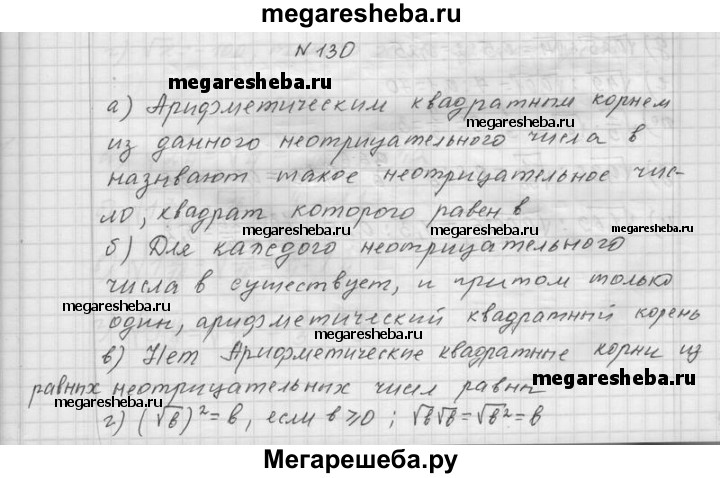 megaresheba.ru
N 130
megaresheba.ru
а) Арифметическим квадратным корнем
megaresheba.ru
из данного неотрицательного числа в
megaresheba.ru
называют такое неотрицательное чис-
ло, квадрат которого равен в
megaresheba.ru
б) Для каждого неотрицательного
числа в существует, и притом только
megaresheba.ru
один, арифметический квадратный корень
megaresheba.ru
в) Нет Арифметические квадратные корни из
равных неотрицательных числ равны
megaresheba.ru
г) (√в)² = в, если в ≥ 0 ; √в√в = √в² = в
Мегарешеба.ру